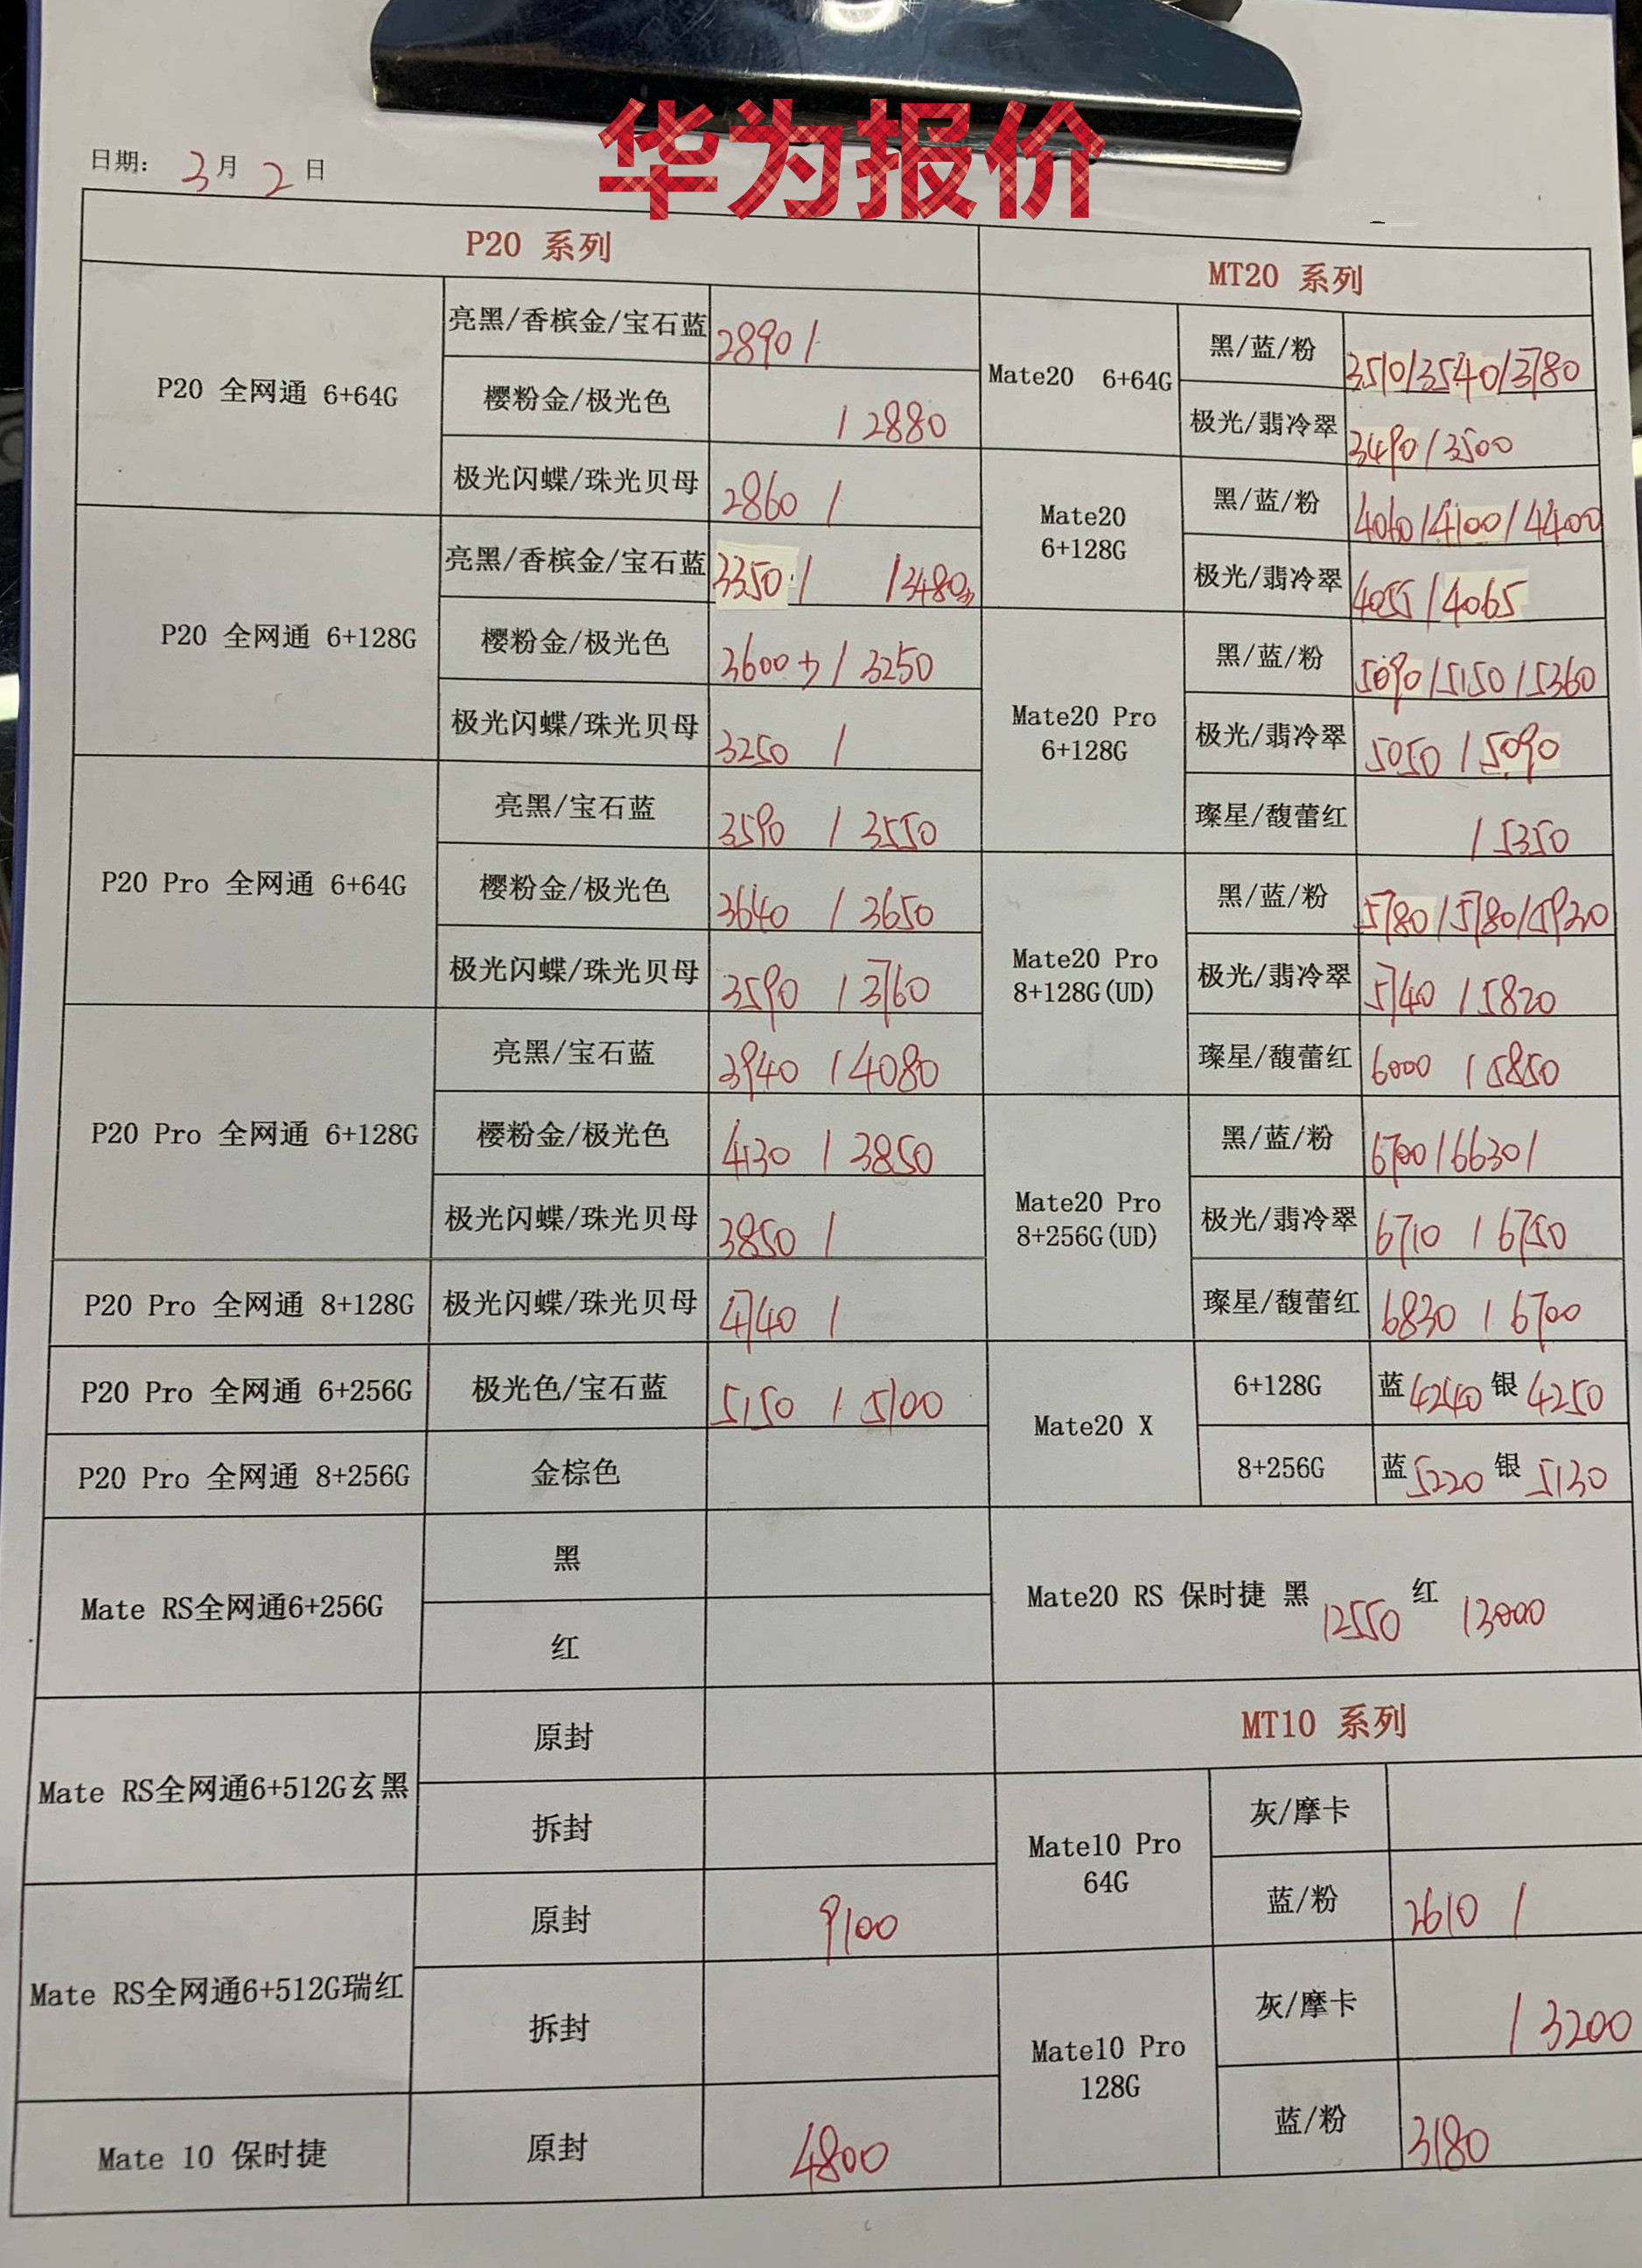 华为报价
日期: 3月2日
P20 系列
P20 全网通 6+64G
亮黑/香槟金/宝石蓝 2890/
樱粉金/极光色 /2880
极光闪蝶/珠光贝母 2860 /
P20 全网通 6+128G
亮黑/香槟金/宝石蓝 3350/ /3480
樱粉金/极光色 3600 /3250
极光闪蝶/珠光贝母 3250 /
P20 Pro 全网通 6+64G
亮黑/宝石蓝 3590 /3550
樱粉金/极光色 3640 /3650
极光闪蝶/珠光贝母 3590 /3760
P20 Pro 全网通 6+128G
亮黑/宝石蓝 3940 /4080
樱粉金/极光色 4130 /3850
极光闪蝶/珠光贝母 3850 /
P20 Pro 全网通 8+128G 极光闪蝶/珠光贝母 4740 /
P20 Pro 全网通 6+256G 极光色/宝石蓝 5150 /5100
P20 Pro 全网通 8+256G 金棕色
Mate RS全网通6+256G
黑
红
Mate RS全网通6+512G玄黑
原封
拆封
Mate RS全网通6+512G瑞红
原封 9100
拆封
Mate 10 保时捷 原封 4800
MT20 系列
Mate20 6+64G
黑/蓝/粉 3510/3540/3780
极光/翡冷翠 3490/3500
Mate20
6+128G
黑/蓝/粉 4060/4100/4400
极光/翡冷翠 4055/4065
Mate20 Pro
6+128G
黑/蓝/粉 5090/5150/5360
极光/翡冷翠 5050/5090
璨星/馥蕾红 /5350
Mate20 Pro
8+128G(UD)
黑/蓝/粉 5780/5780/5920
极光/翡冷翠 5740/5820
璨星/馥蕾红 6000/5850
Mate20 Pro
8+256G(UD)
黑/蓝/粉 6700/6630/
极光/翡冷翠 6710/6750
璨星/馥蕾红 6830/6700
Mate20 X
6+128G 蓝4240 银4250
8+256G 蓝5220 银5130
Mate20 RS 保时捷 黑 12550 红 13000
MT10 系列
Mate10 Pro
64G
灰/摩卡
蓝/粉 2610 /
Mate10 Pro
128G
灰/摩卡 /3200
蓝/粉 3180